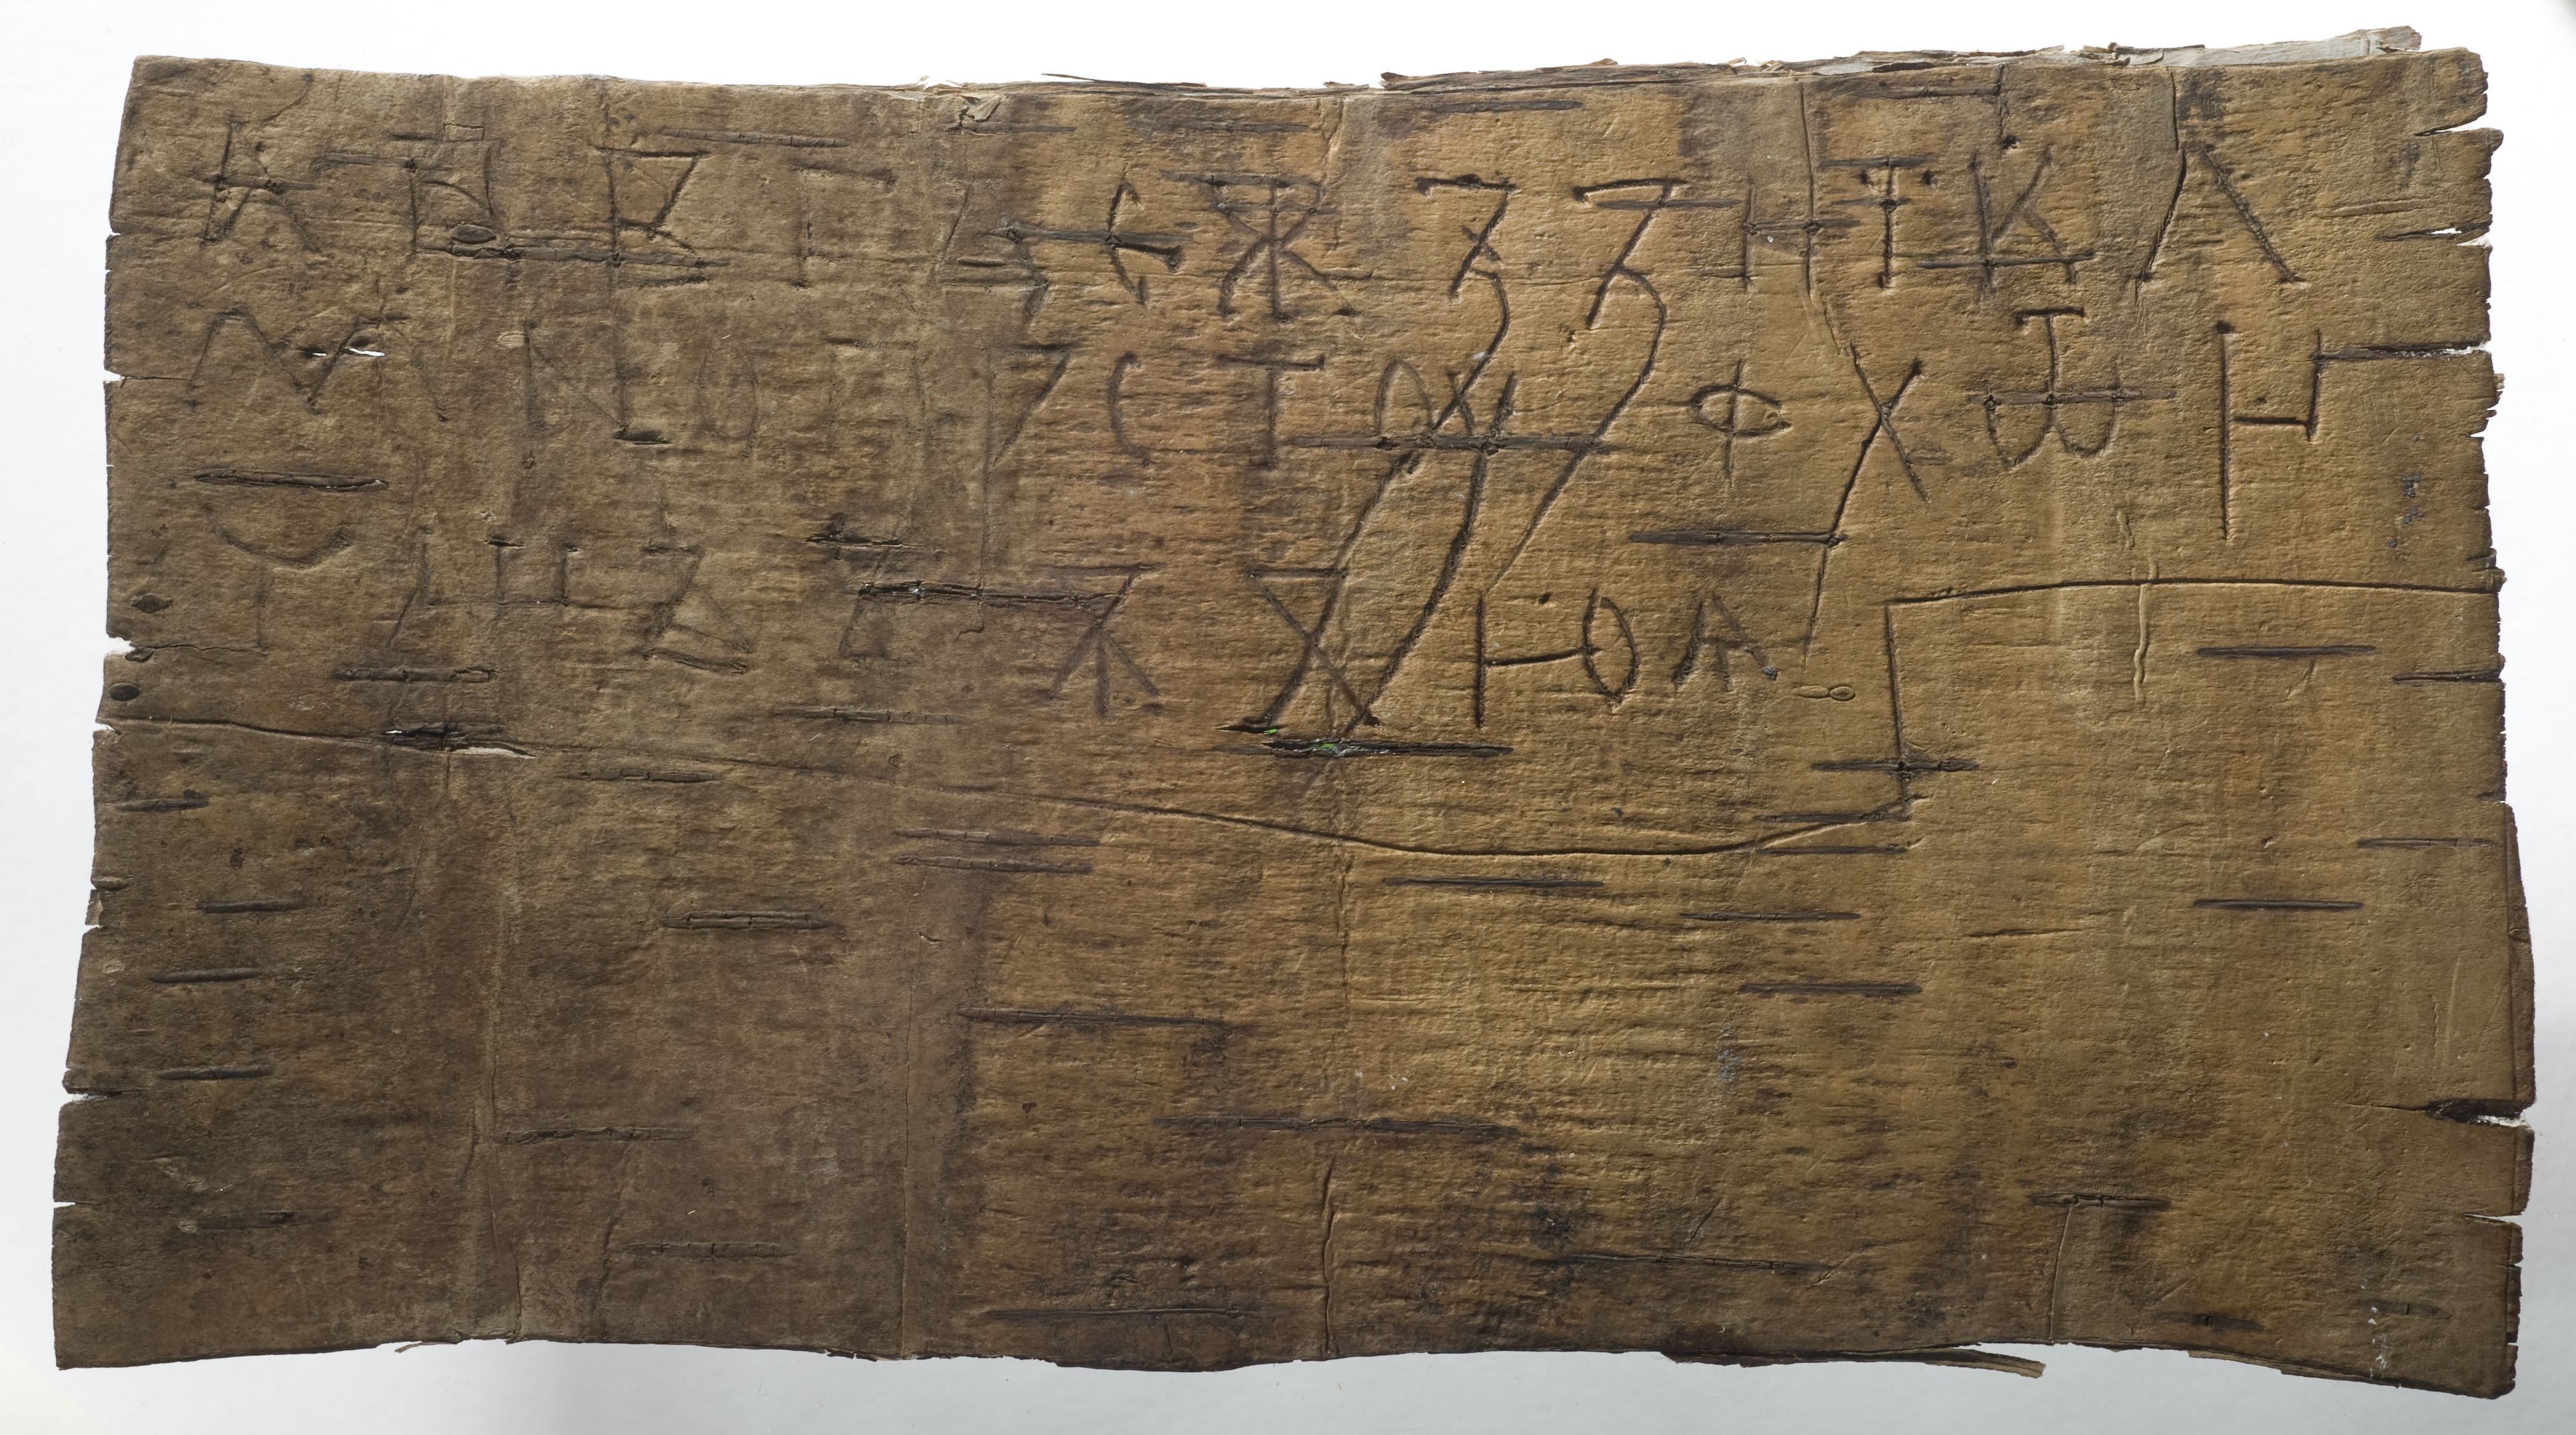 А Б В Г Д Е Ж Ѕ З И І К Л
М N О П Р С Т ОУ Ф Х Ѿ Ц
Ч Ш Ъ Ѫ Ю Ѧ